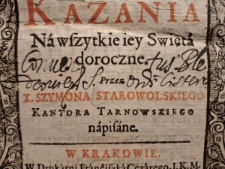 KAZANIA
Ná wszytkie iey Swiętá
doroczne.
Przez
X. SZYMONA STAROWOLSKIEGO
KANTORA TARNOWSKIEGO
nápisáne.
W KRAKOWIE,
W Drukárni Fránciszká Cezárego, I.K.M.